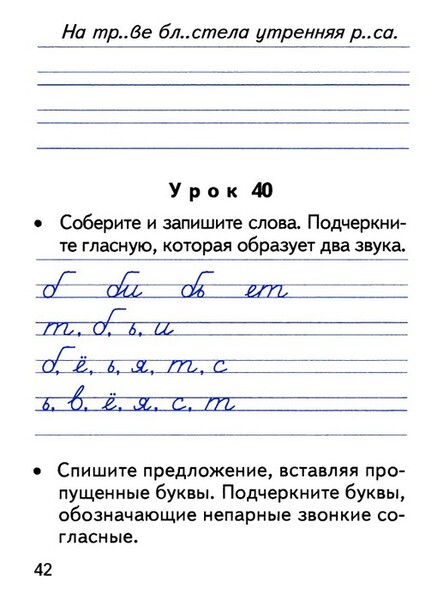 На тр..ве бл..стела утренняя р..са.
Урок 40
• Соберите и запишите слова. Подчеркни-
те гласную, которая образует два звука.
б би бь ет
т, б, ь, и
б, ё, ь, я, т, с
ь, в, ё, я, с, т
• Спишите предложение, вставляя про-
пущенные буквы. Подчеркните буквы,
обозначающие непарные звонкие со-
гласные.
42